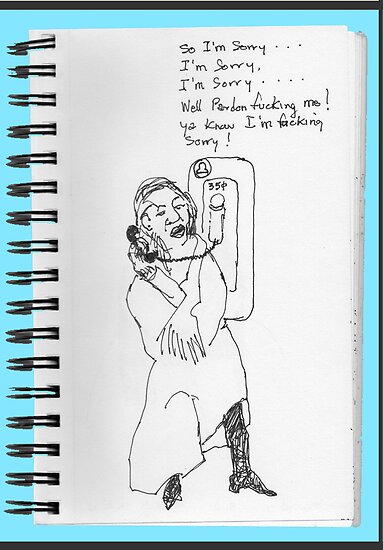 So I'm Sorry . . .
I'm Sorry,
I'm Sorry . . . . .
Well Pardon fucking me!
ya know I'm fucking
Sorry!
35¢